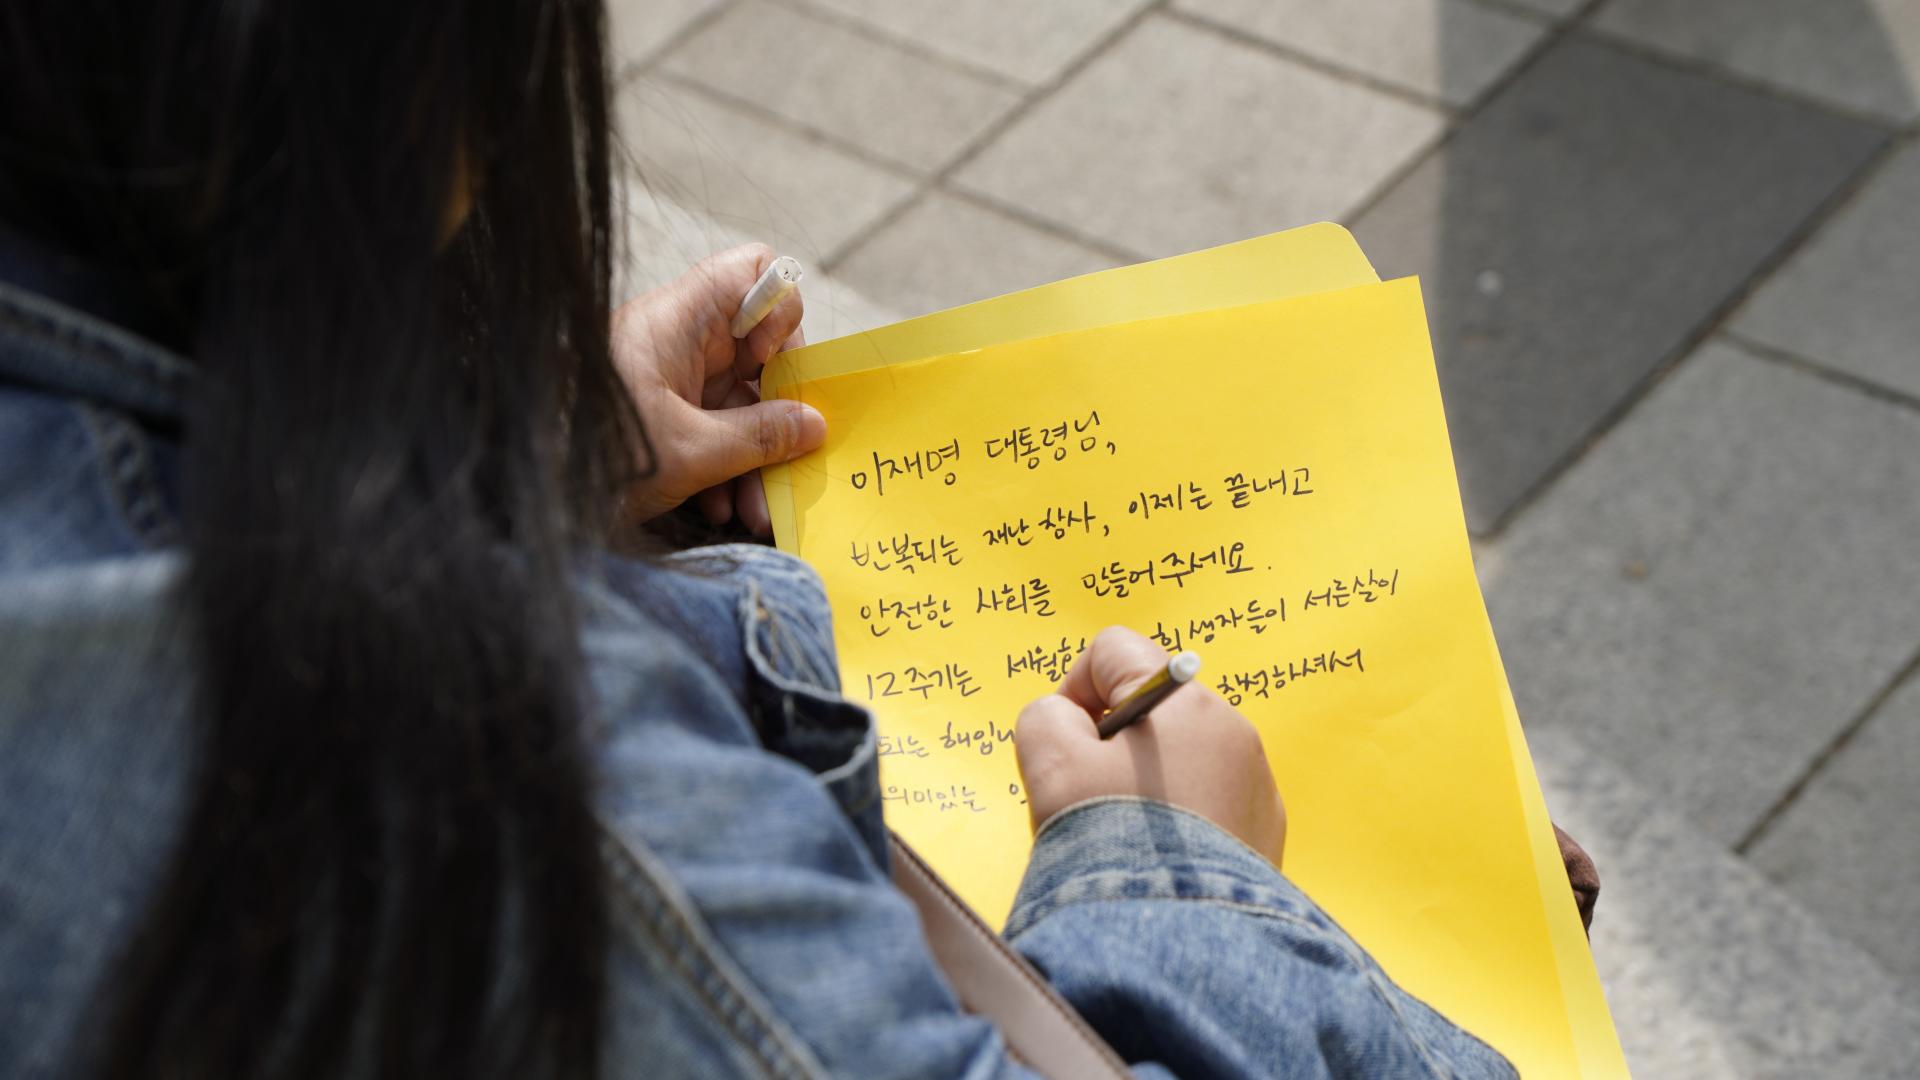 이재명 대통령님,
반복되는 재난참사, 이제는 끝내고
안전한 사회를 만들어주세요.
12주기는 세월호 희생자들이 서른살이
되는 해입니 참석하셔서
의미있는